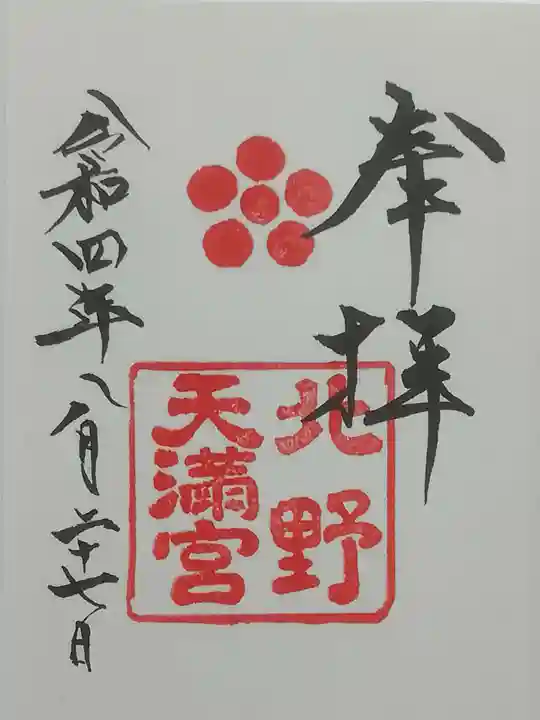 奉拝
北野
天満宮
令和四年八月二十七日